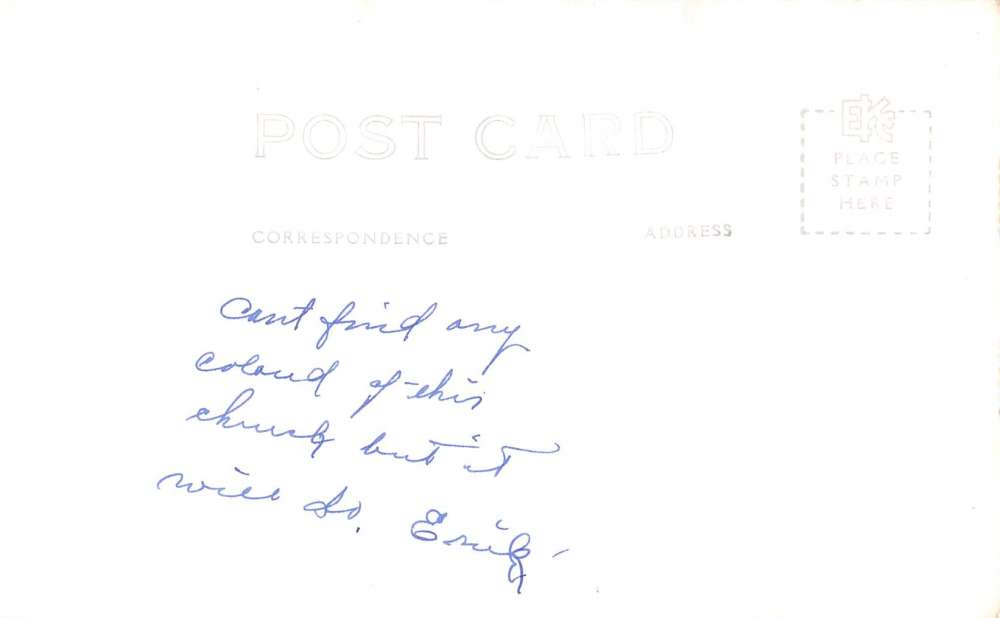 POST CARD
EKC
PLACE
STAMP
HERE
CORRESPONDENCE
ADDRESS
Cant find any
colord of this
church but it
will do. Erik